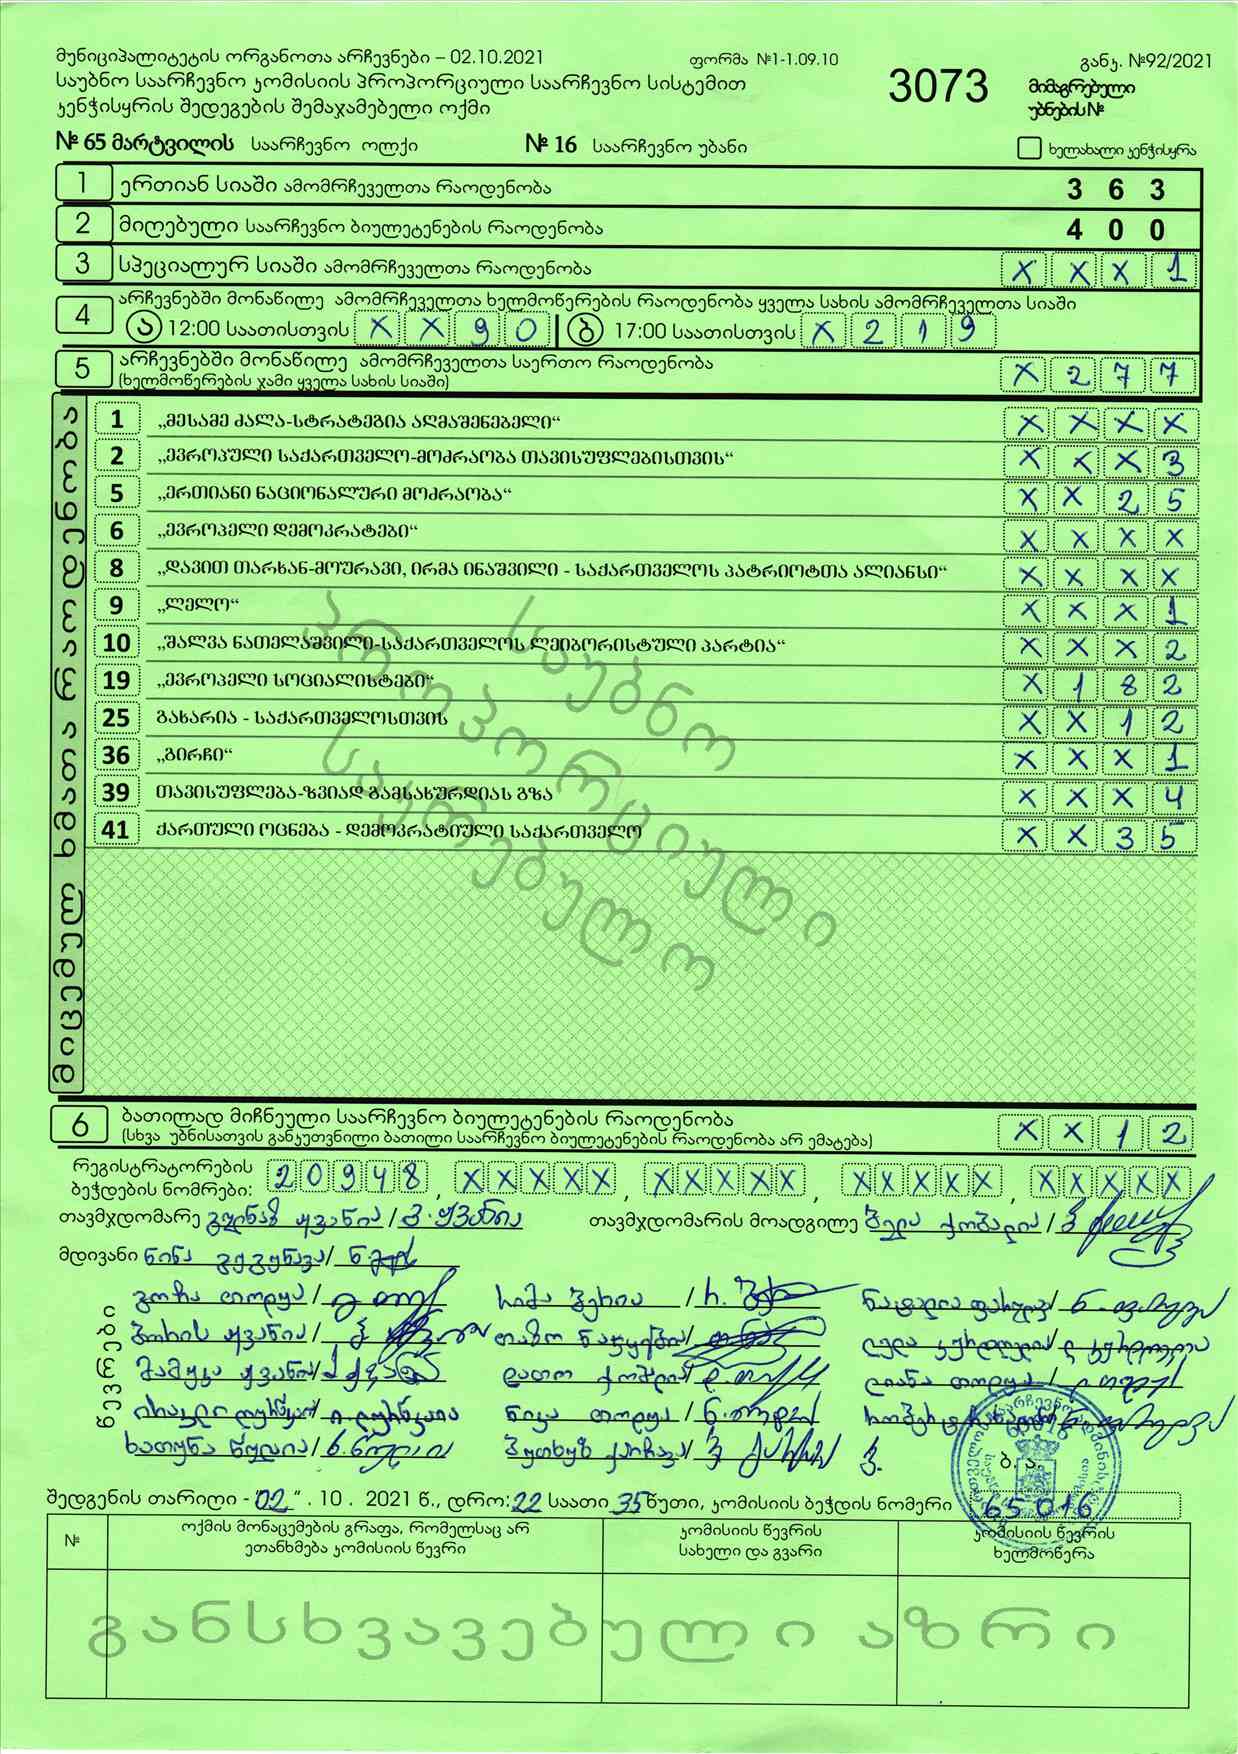 მუნიციპალიტეტის ორგანოთა არჩევნები – 02.10.2021 ფორმა №1-1.09.10 განკ. №92/2021
საუბნო საარჩევნო კომისიის პროპორციული საარჩევნო სისტემით 3073 მიმაგრებული
კენჭისყრის შედეგების შემაჯამებელი ოქმი უბნების №
№ 65 მარტვილის საარჩევნო ოლქი № 16 საარჩევნო უბანი ხელახალი კენჭისყრა
1 ერთიან სიაში ამომრჩეველთა რაოდენობა 3 6 3
2 მიღებული საარჩევნო ბიულეტენების რაოდენობა 4 0 0
3 სპეციალურ სიაში ამომრჩეველთა რაოდენობა X X X 1
4 არჩევნებში მონაწილე ამომრჩეველთა ხელმოწერების რაოდენობა ყველა სახის ამომრჩეველთა სიაში
ა 12:00 საათისთვის X X 9 0 ბ 17:00 საათისთვის X 2 1 9
5 არჩევნებში მონაწილე ამომრჩეველთა საერთო რაოდენობა X 2 7 7
(ხელმოწერების ჯამი ყველა სახის სიაში)
მიცემულ ხმათა რაოდენობა
1 „მესამე ძალა-სტრატეგია აღმაშენებელი“ X X X X
2 „ევროპული საქართველო-მოძრაობა თავისუფლებისთვის“ X X X 3
5 „ერთიანი ნაციონალური მოძრაობა“ X X 2 5
6 „ევროპელი დემოკრატები“ X X X X
8 „დავით თარხან-მოურავი, ირმა ინაშვილი - საქართველოს პატრიოტთა ალიანსი“ X X X X
9 „ლელო“ X X X 1
10 „შალვა ნათელაშვილი-საქართველოს ლეიბორისტული პარტია“ X X X 2
19 „ევროპელი სოციალისტები“ X 1 8 2
25 გახარია - საქართველოსთვის X X 1 2
36 „გირჩი“ X X X 1
39 თავისუფლება-ზვიად გამსახურდიას გზა X X X 4
41 ქართული ოცნება - დემოკრატიული საქართველო X X 3 5
საუბნო
პროპორციული
საარჩევნო
6 ბათილად მიჩნეული საარჩევნო ბიულეტენების რაოდენობა X X 1 2
(სხვა უბნისათვის განკუთვნილი ბათილი საარჩევნო ბიულეტენების რაოდენობა არ ემატება)
რეგისტრატორების
ბეჭდების ნომრები: 2 0 9 4 8 , X X X X X , X X X X X , X X X X X , X X X X X
თავმჯდომარე გულნაზ ჟვანია / გ. ჟვანია თავმჯდომარის მოადგილე ბელა ქობალია /
მდივანი ნინა გეგენავა /
წევრები
გოჩა თოდუა / სიმა ბერია / ს.
ბორის ჟვანია /
მამუკა ჟვანია / დათო
დიანა თოდუა /
ნიკა თოდუა /
ხათუნა წულაია / ხ. წულაია
ბ. ა.
შედგენის თარიღი - „02“ . 10 . 2021 წ., დრო: 22 საათი 35 წუთი, კომისიის ბეჭდის ნომერი 65 016
№ ოქმის მონაცემების გრაფა, რომელსაც არ ეთანხმება კომისიის წევრი კომისიის წევრის სახელი და გვარი კომისიის წევრის ხელმოწერა
განსხვავებული აზრი